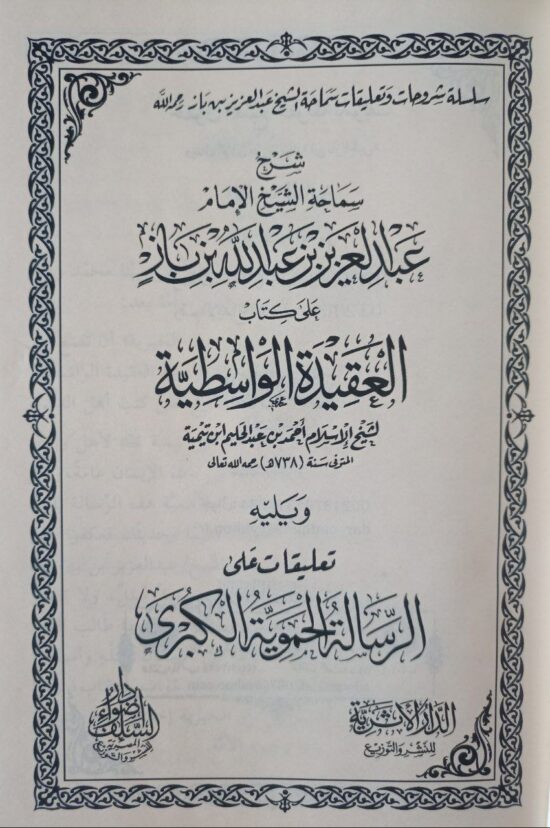 سلسلة شروحات وتعليقات سماحة الشيخ عبد العزيز بن باز رحمه الله
شرح
سماحة الشيخ الإمام
عبد العزيز بن عبد الله بن باز
على كتاب
العقيدة الواسطية
لشيخ الإسلام أحمد بن عبد الحليم ابن تيمية
المتوفى سنة (٧٣٨هـ) رحمه الله تعالى
ويليه
تعليقات على
الرسالة الحموية الكبرى
الدار الأثرية
للنشر والتوزيع
دار
أضواء
السلف
المصرية
للنشر والتوزيع